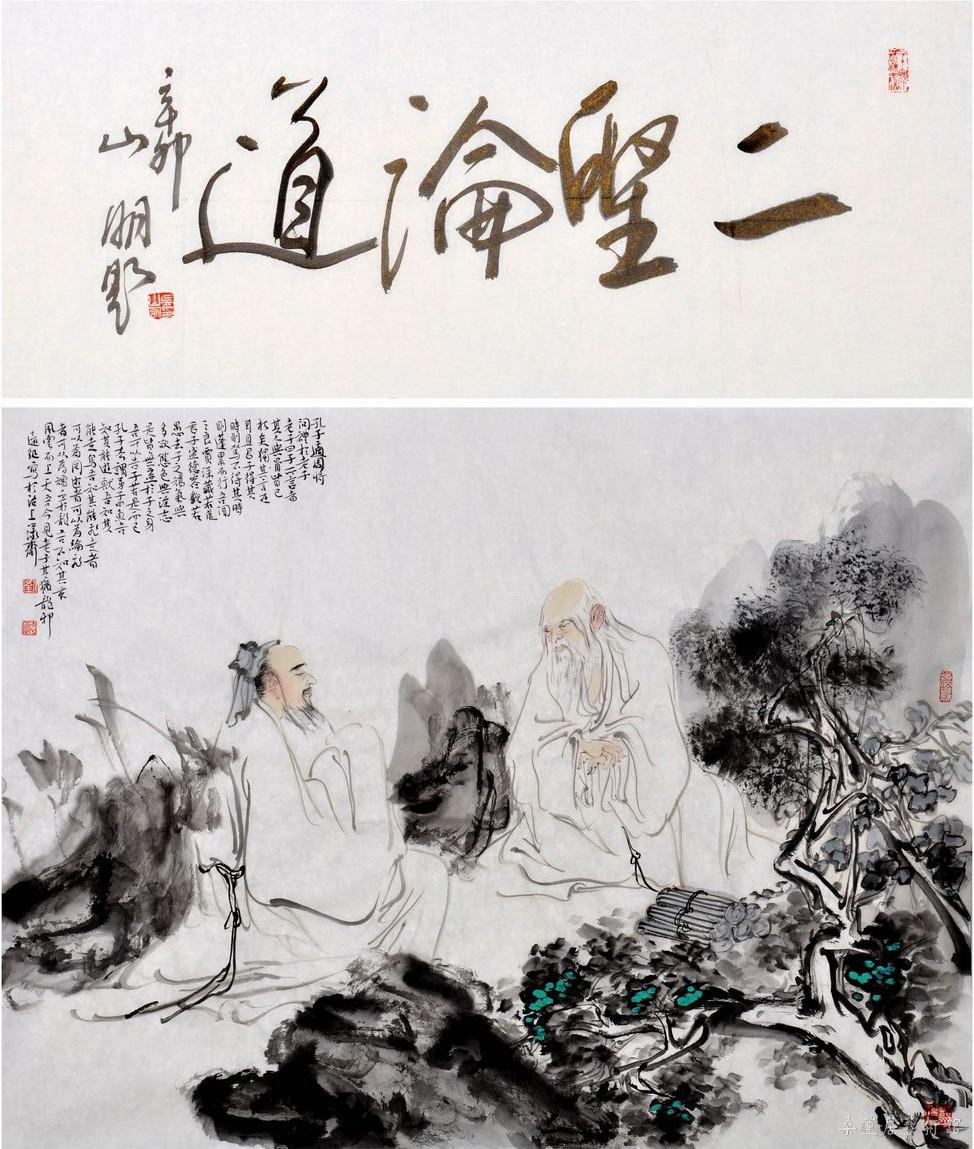 二聖論道
辛卯
山明題
孔子適周將
問禮於老子
老子曰子所言者
其人與骨皆已
朽矣獨其言在
耳且君子得其
時則駕不得其時
則蓬累而行吾聞
之良賈深藏若虛
君子盛德容貌若
愚去子之驕氣與
多欲態色與淫志
是皆無益於子之身
吾所以告子者是而已
孔子去謂弟子曰魚吾
知其能遊獸吾知其
能走鳥吾知其能飛走者
可以為罔游者可以為綸飛
者可以為矰至於龍吾不知其乘
風雲而上天吾今見老子其猶龍邪
寫於滬上
桑蓮居藝術館